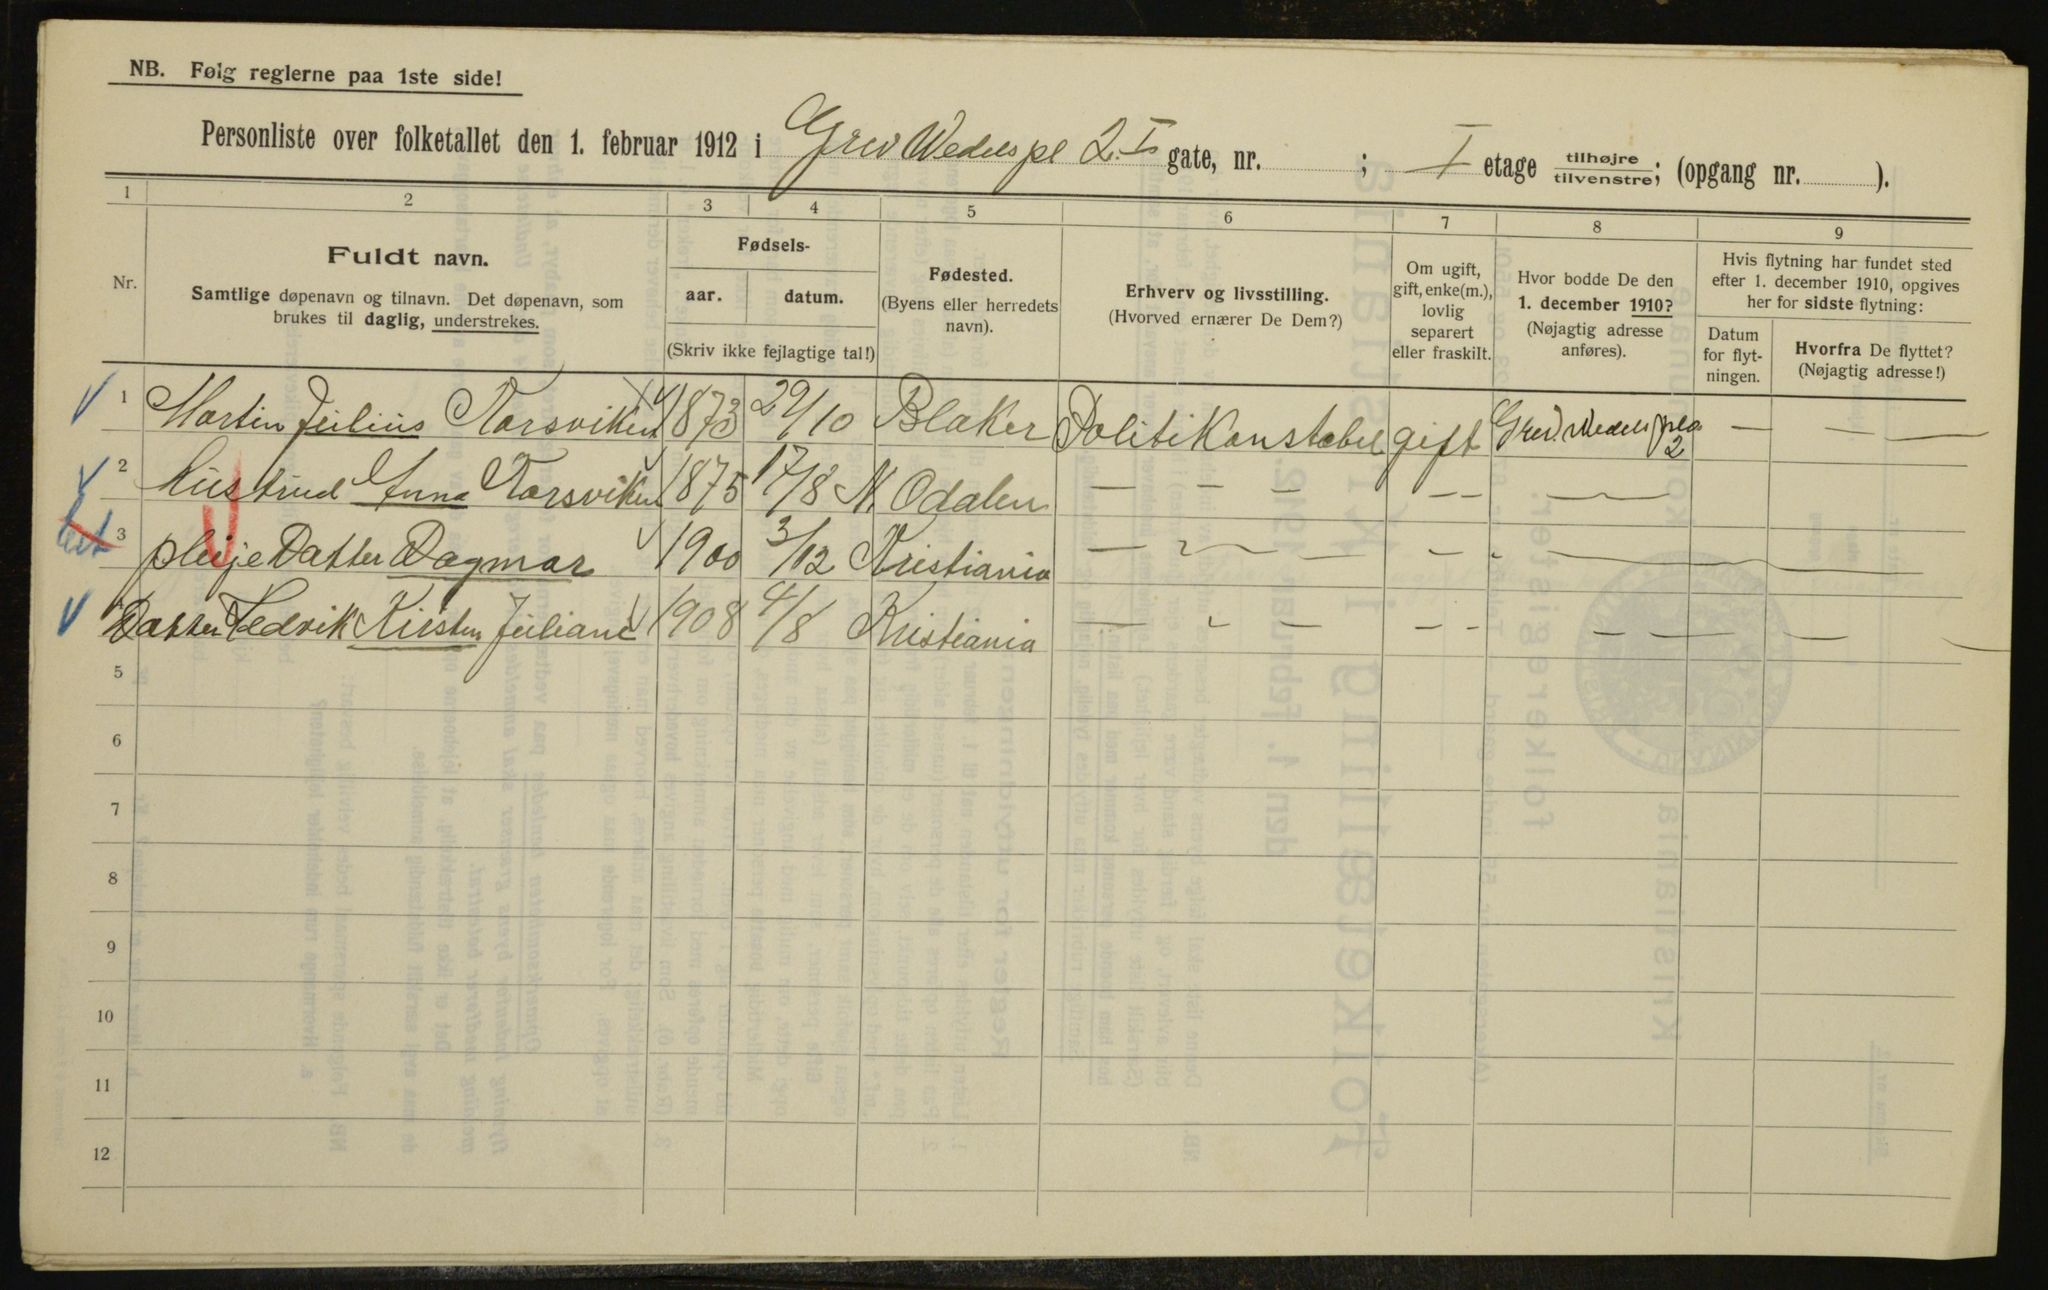 NB. Følg reglerne paa 1ste side!
Personliste over folketallet den 1. februar 1912 i Grev Wedels pl 2. I gate, nr. ; I etage tilhøjre tilvenstre; (opgang nr. ).
1 2 3 4 5 6 7 8 9
Nr.
Fuldt navn.
Samtlige døpenavn og tilnavn. Det døpenavn, som
brukes til daglig, understrekes.
Fødsels-
aar. datum.
(Skriv ikke fejlagtige tal!)
Fødested.
(Byens eller herredets
navn).
Erhverv og livsstilling.
(Hvorved ernærer De Dem?)
Om ugift,
gift, enke(m.),
lovlig
separert
eller fraskilt.
Hvor bodde De den
1. december 1910?
(Nøjagtig adresse
anføres).
Hvis flytning har fundet sted
efter 1. december 1910, opgives
her for sidste flytning:
Datum
for flyt-
ningen.
Hvorfra De flyttet?
(Nøjagtig adresse!)
1 Martin Julius Korsviken 1873 29/10 Blaker Politikonstabel gift Grev. Wedels pla 2 — — —
2 Hustrud Anna Korsviken 1875 17/8 N. Odalen — — — — — —
3 pleije Datter Dagmar 1900 3/12 Kristiania — — — — —
Datter Hedvik Kirsten Juliane 1908 4/8 Kristiania — — — — — — — —
5
6
7
8
9
10
11
12